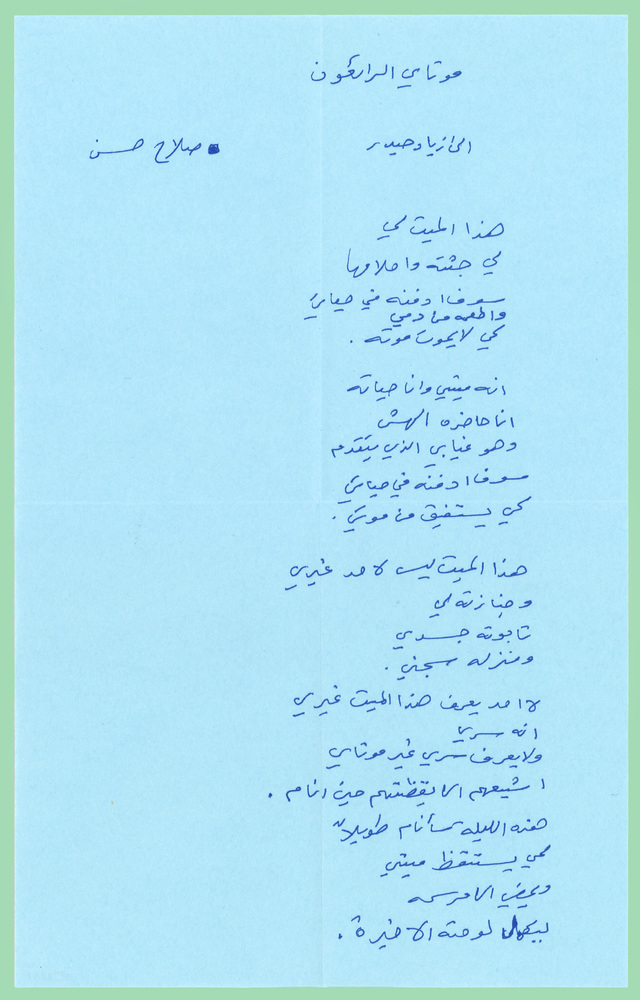 موتاي الرائعون
الى زياد حيدر
صلاح حسن
هذا الميت لي
لي جثته واحلامها
سوف ادفنه في حياتي
واطعمه من دمي
كي لايموت موته .
انه ميتي وانا حياته
انا حاضره الهش
وهو غيابي الذي يتقدم
سوف ادفنه في حياتي
كي يستفيق من موتي .
هذا الميت ليس لاحد غيري
وجنازته لي
تابوته جسدي
ومنزله سجني .
لا احد يعرف هذا الميت غيري
انه سري
ولايعرف سري غير موتاي
اشيعهم الى يقظتهم حين انام .
هذه الليله سأنام طويلاً
لكي يستقظ ميتي
ويمضي الى مرسمه
ليكمل لوحته الاخيرة .